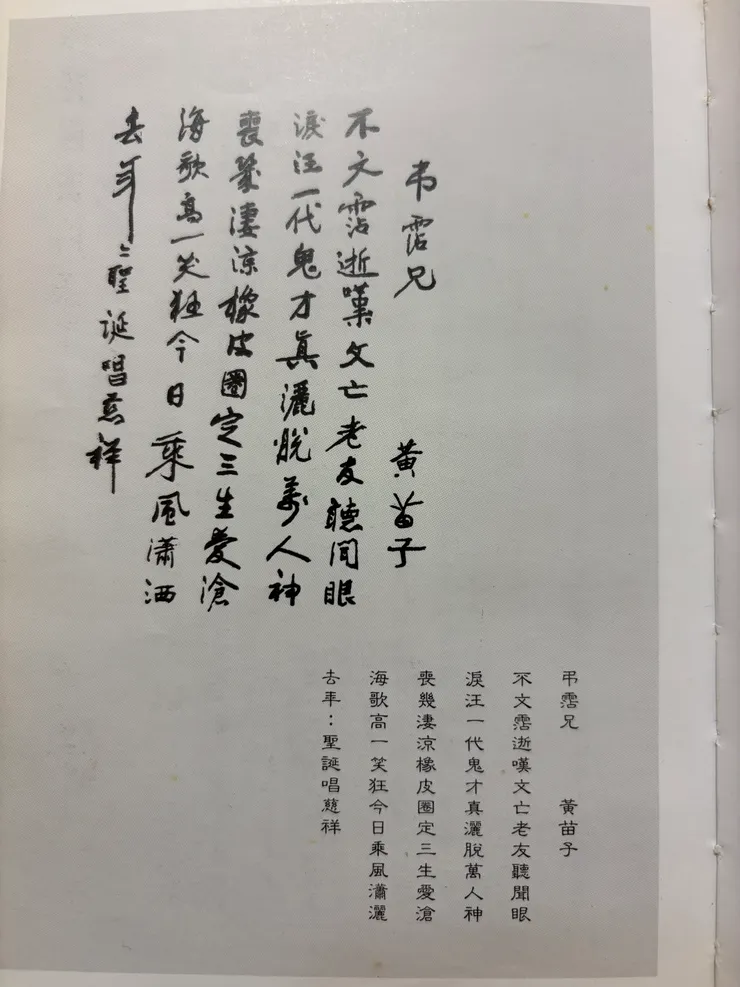 弔霑兄　黃苗子
不文霑逝嘆文亡老友聽聞眼
淚汪一代鬼才眞灑脫萬人神
喪幾淒涼橡皮圈定三生愛滄
海歌高一笑狂今日乘風瀟洒
去年：聖誕唱慈祥
弔霑兄　黃苗子
不文霑逝嘆文亡老友聽聞眼
淚汪一代鬼才真灑脫萬人神
喪幾淒涼橡皮圈定三生愛滄
海歌高一笑狂今日乘風瀟灑
去年：聖誕唱慈祥